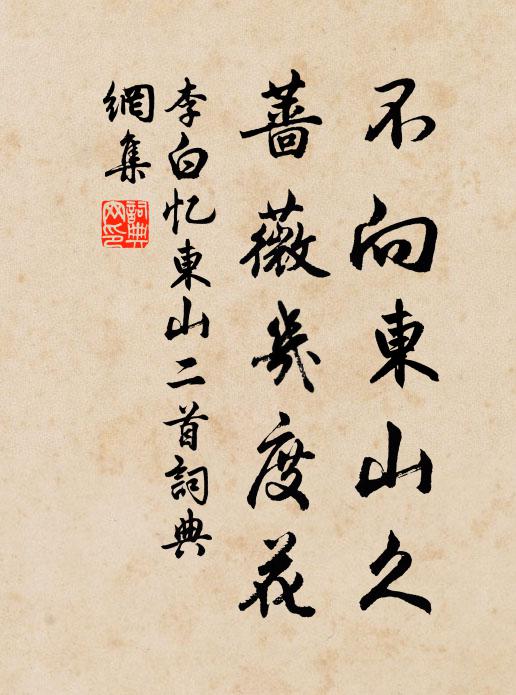 不向東山久
薔薇幾度花
李白忆東山二首詞典
網集
詞典
网印